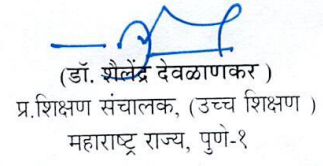 (डॉ. शैलेंद्र देवळाणकर )
प्र.शिक्षण संचालक, (उच्च शिक्षण )
महाराष्ट्र राज्य, पुणे-१